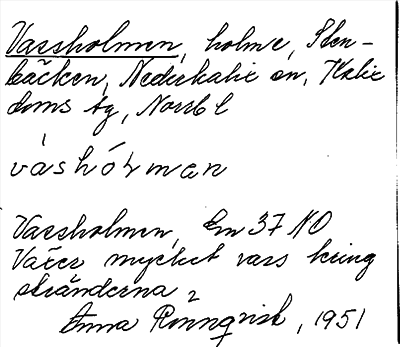 Vassholmen, holme, Sten-
bäcken, Nederkalix sn, Kalix
doms tg, Norrb l
vàshól̀man
Vassholmen, Em 37 NO
Växer mycket vass kring
stränderna
Anna Rönnqvist, 1951